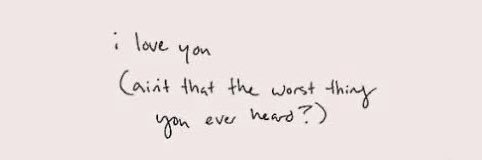 i love you
(ain't that the worst thing
you ever heard?)